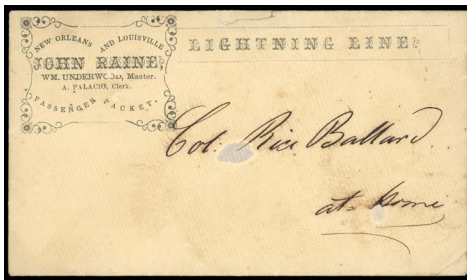 NEW ORLEANS AND LOUISVILLE
JOHN RAINE,
WM. UNDERWOOD, Master.
A. PALACIO, Clerk.
PASSENGER PACKET.
LIGHTNING LINE.
Col. Rice Ballard.
at home